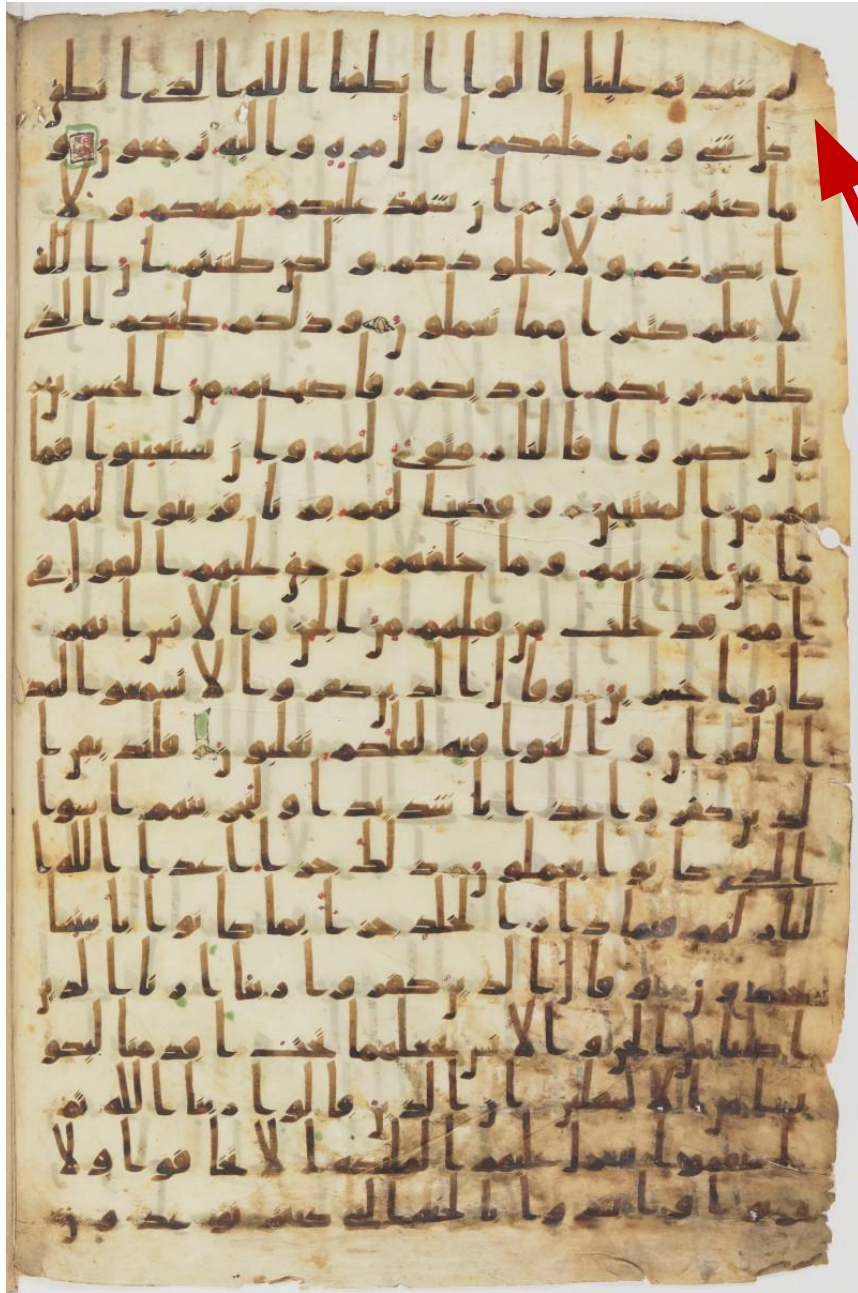 لم شهدتم علينا قالوا انطقنا الله الذي انطق
كل شي وهو خلقكم اول مره واليه ترجعون و
ما كنتم تستترون ان يشهد عليكم سمعكم ولا
ابصركم ولا جلودكم ولكن ظننتم ان الله
لا يعلم كثيرا مما تعملون وذلكم ظنكم الذي
ظننتم بربكم ارديكم فاصبحتم من الخسرين
فان يصبروا فالنار مثوى لهم وان يستعتبوا فما
هم من المعتبين وقيضنا لهم قرنا فزينوا لهم
ما بين ايديهم وما خلفهم وحق عليهم القول في
امم قد خلت من قبلهم من الجن والانس انهم
كانوا خسرين وقال الذين كفروا لا تسمعوا لهذ
ا القران والغوا فيه لعلكم تغلبون فلنذيقن ا
لذين كفروا عذابا شديدا ولنجزينهم اسوا
الذي كانوا يعملون ذلك جزا اعدا الله ا
لنار لهم فيها دار الخلد جزا بما كانوا بايتنا
يجحدون وقال الذين كفروا ربنا ارنا الذين
اضلنا من الجن والانس نجعلهما تحت اقدمنا ليكو
نا من الاسفلين ان الذين قالوا ربنا الله ثم
استقموا تتنزل عليهم الملئكه الا تخافوا ولا
تحزنوا وابشروا بالجنه التي كنتم توعدون